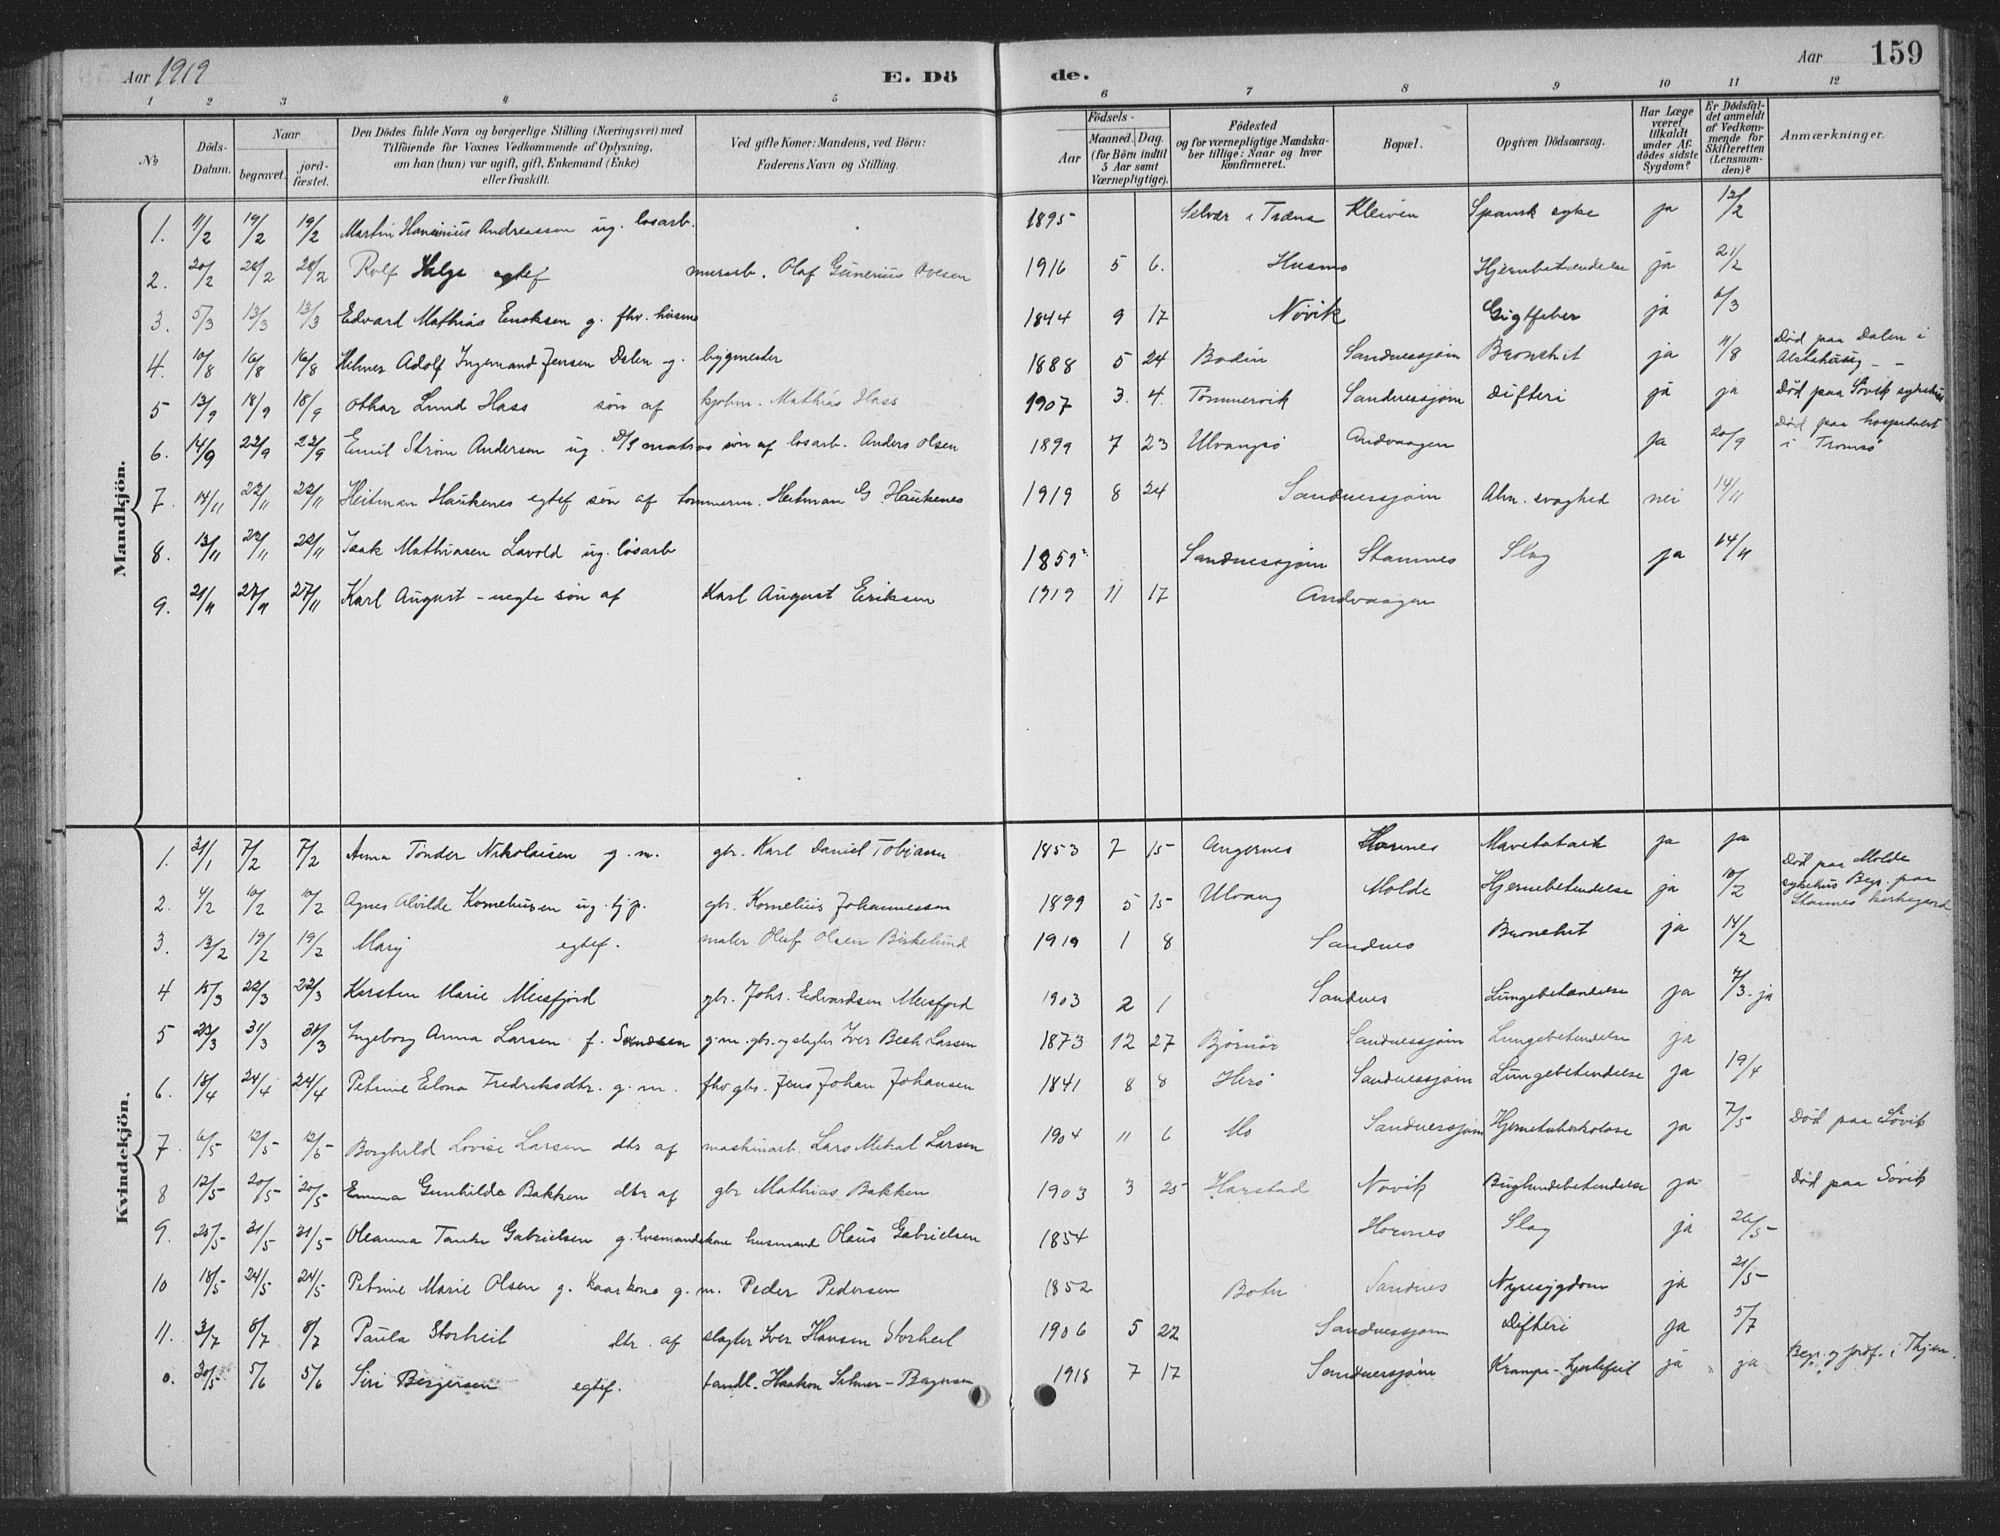 Aar 1919 E. Dö de. Aar 159
1 2 3 4 5 6 7 8 9 10 11 12
No Döds-Datum. Naar begravet. jord-fæstet. Den Dödes fulde Navn og borgerlige Stilling (Næringsvei) med Tilföiende for Voxnes Vedkommende af Oplysning, om han (hun) var ugift, gift, Enkemand (Enke) eller fraskilt. Ved gifte Koner: Mandens, ved Börn: Faderens Navn og Stilling. Födsels- Aar Maaned. Dag. (for Börn indtil 5 Aar samt Værnepligtige). Födested og for værnepligtige Mandska-ber tillige: Naar og hvor konfirmeret. Bopæl. Opgiven Dödsaarsag. Har Læge været tilkaldt under Af-dödes sidste Sygdom? Er Dödsfal-det anmeldt af Vedkom-mende for Skifteretten (Lensman-den)? Anmærkninger.
Mandkjön.
1. 11/2 19/2 19/2 Martin Hansinius Andreassen ug. løsarb. 1895 Selvær i Træna Kleiven Spansk syke ja 12/2
2. 20/2 28/2 28/2 Rolf Helge egtef murarb. Olaf Gunerius Ovesen 1916 5 6. Husmo Hjernebetændelse ja 21/2
3. 5/3 13/3 13/3 Edvard Mathias Enoksen g. fhv. husm 1844 9 17 Növik Gigtfeber ja 6/3
4. 10/8 16/8 16/8 Helmer Adolf Ingemand Jensen Dalen g. bygmester 1888 5 24 Bodin Sandnessjøen Bronchit ja 11/8 Död paa Dalen i Alstahaug
5 13/9 18/9 18/9 Othar Lund Hass søn af kjøbm. Mathias Hass 1907 3. 4. Tømmervik Sandnessjøen Difteri ja ja Död paa Søvik sykehus
6. 14/9 22/9 22/9 Emil Strøm Andersen ug. D/S matros søn af løsarb. Anders Olsen 1899 7 23 Ulvangsø Andvaagen ja 20/9 Död paa hospitalet i Tromsø
7. 14/11 22/11 22/11 Heitman Haukenes egtef søn af tømmerm. Heitman G Haukenes 1919 8 24 Sandnessjøen Alm. svaghed nei 14/11
8. 13/11 22/11 22/11 Isak Mathiasen Lavold ug. løsarb 1859 Sandnessjøen Stamnes Slag ja 14/11
9. 21/11 27/11 27/11 Karl August - uegte søn af Karl August Eriksen 1919 11 17 Andvaagen
Kvindekjön.
1. 31/1 7/2 7/2 Anna Tönder Nikolaisen g. m. gbr. Karl Daniel Tobiassen 1853 7 15 Angernes Hornes Mavekatark ja ja
2. 4/2 10/2 10/2 Agnes Alvilde Korneliusen ug. tjp. gbr. Kornelius Johannessen 1899 5 15 Ulvang Molde Hjernebetendelse ja 10/2 Död paa Molde sykehus Begr. paa Stamnes kirkegaard
3. 13/2 19/2 19/2 Mary egtef. maler Oluf Olsen Birkelund 1919 1 8 Sandnes Bronchit ja 14/2
4 15/3 22/3 22/3 Karsten Marie Meisfjord gbr. Johs. Edvardsen Meisfjord 1903 2 1 Sandnes Lungebetændelse ja 7/3. ja
5 23/3 31/3 31/3 Ingeborg Anna Larsen f. Svendsen g.m. gbr. og slagter Iver Besk Larsen 1873 12 27 Bjørnør Sandnessjøen Lungebetendelse ja
6. 18/4 24/4 24/4 Petrine Elona Fredriksdtr. g. m. fhv gbr. Jens Johan Johansen 1841 8 8 Herø Sandnessjøen Lungebetendelse ja 19/4
7 6/5 12/5 12/5 Borghild Lovise Larsen dtr af maskinarb. Lars Mikal Larsen 1904 11 6 Mo Sandnessjøen Hjernetuberkolose ja 7/5 Död paa Søvik
8 12/5 20/5 20/5 Emma Gunhilda Bakken dtr af gbr Mathias Bakken 1903 3 25 Harstad Növik Bughindebetendelse ja Död paa Søvik
9. 25/5 31/5 31/5 Oleanna Tanke Gabrielsen g. husmandskone husmand Olaus Gabrielsen 1854 Hornes Slag ja 26/5
10 18/5 24/5 24/5 Petrine Marie Olsen g. kaarkone g. m. Peder Pedersen 1852 Botn Sandnes Nyresygdom ja 21/5
11. 3/7 8/7 8/7 Paula Storheil dtr. af slagter Iver Hansen Storheil 1906 5 22 Sandnessjøen Difteri ja 5/7
0. 30/5 5/6 5/6 Siri Bergersen egtef. tandl. Haakon 1918 7 17 Sandnessjøen Krampe-hjertefeil ja ja Begr. og jordf. i Thjøtta